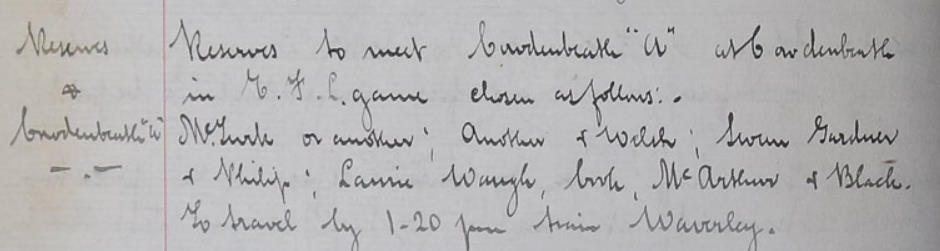 Reserves Reserves to meet Cowdenbeath "A" at Cowdenbeath
& in E. F. L. game chosen as follows:-
Cowdenbeath "A" McTurk or another; Another & Welsh; Swan Gardner
& Philip; Laurie Waugh, McArthur & Black.
To travel by 1-20 pm train Waverley.